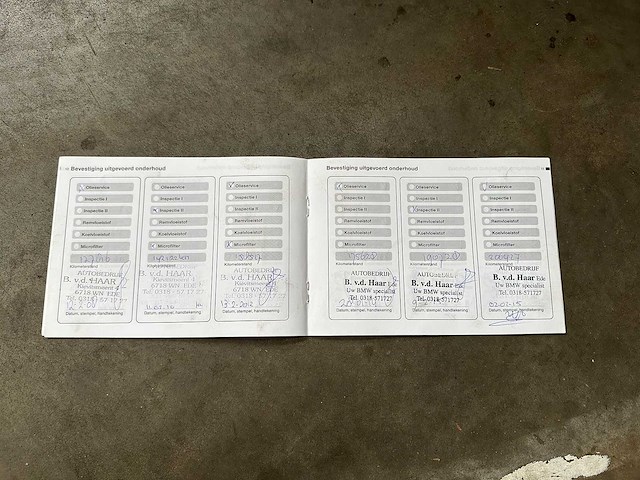 Bevestiging uitgevoerd onderhoud
Olieservice
Inspectie I
Inspectie II
Remvloeistof
Koelvloeistof
Microfilter
Kilometerstand
AUTOBEDRIJF
B. v.d. HAAR
Kievitsmeent 4
6718 WN EDE
Datum, stempel, handtekening
Olieservice
Inspectie I
Inspectie II
Remvloeistof
Koelvloeistof
Microfilter
Kilometerstand
AUTOBEDRIJF
B. v.d. HAAR
Kievitsmeent 4
6718 WN EDE
Datum, stempel, handtekening
Olieservice
Inspectie I
Inspectie II
Remvloeistof
Koelvloeistof
Microfilter
Kilometerstand
AUTOBEDRIJF
B. v.d. HAAR
Kievitsmeent 4
6718 WN
Datum, stempel, handtekening
Bevestiging uitgevoerd onderhoud
Olieservice
Inspectie I
Inspectie II
Remvloeistof
Koelvloeistof
Microfilter
Kilometerstand
AUTOBEDRIJF
B. v.d. Haar
Uw BMW specialist
Tel. 0318-571727
Datum, stempel, handtekening
Olieservice
Inspectie I
Inspectie II
Remvloeistof
Koelvloeistof
Microfilter
Kilometerstand
AUTOBEDRIJF
B. v.d. Haar Ede
Uw BMW specialist
Tel. 0318-571727
Datum, stempel, handtekening
Olieservice
Inspectie I
Inspectie II
Remvloeistof
Koelvloeistof
Microfilter
Kilometerstand
AUTOBEDRIJF
B. v.d. Haar Ede
Uw BMW specialist
Tel. 0318-571727
Datum, stempel, handtekening